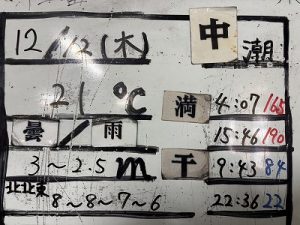 12/12(木) 中潮
21℃ 満 4:07 165
曇/雨 15:46 190
3～2.5m 干 9:43 84
北北東 8～8～7～6 22:36 22